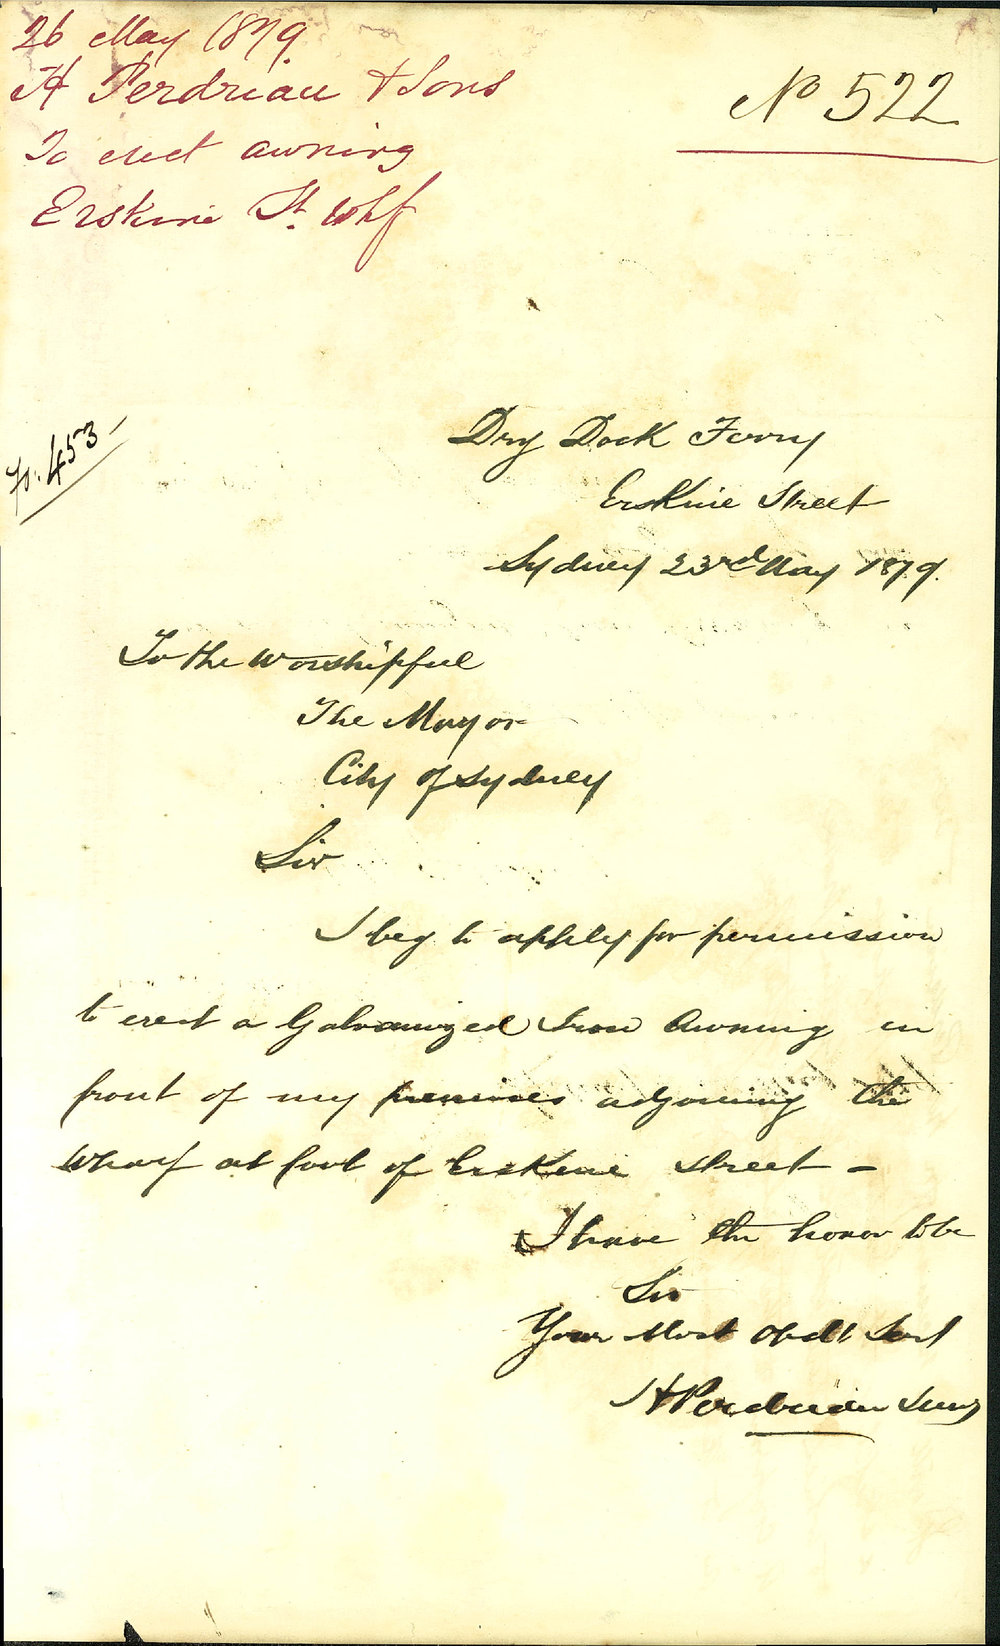 26 May 1879
H Perdriau & Sons
To erect awning
Erskine St. Whf
No 522
Fo. 453
Dry Dock Ferry
Erskine Street
Sydney 23rd May 1879.
To the Worshipful
The Mayor
City of Sydney
Sir
I beg to apply for permission
to erect a Galvanized Iron Awning in
front of my premises adjoining the
Wharf at foot of Erskine Street -
I have the honor to be
Sir
Your Most Obdt Servt
H Perdriau